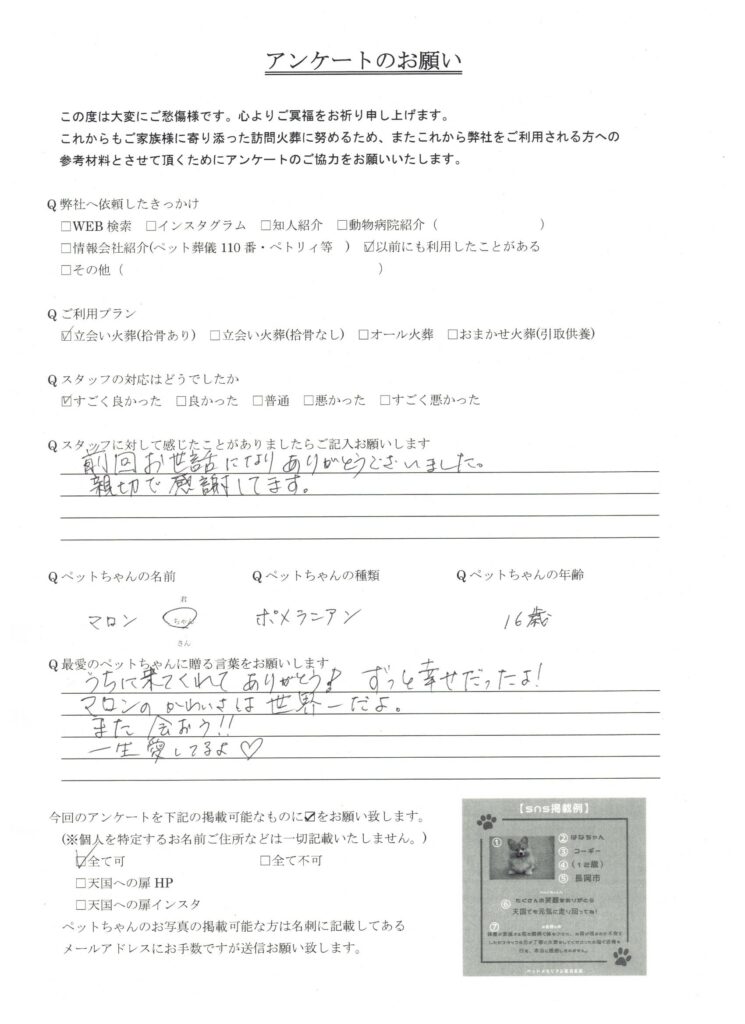 アンケートのお願い
この度は大変にご愁傷様です。心よりご冥福をお祈り申し上げます。
これからもご家族様に寄り添った訪問火葬に努めるため、またこれから弊社をご利用される方への
参考材料とさせて頂くためにアンケートのご協力をお願いいたします。
Q 弊社へ依頼したきっかけ
□WEB 検索 □インスタグラム □知人紹介 □動物病院紹介（ ）
□情報会社紹介(ペット葬儀 110 番・ペトリィ等 ) ☑以前にも利用したことがある
□その他（ ）
Q ご利用プラン
☑立会い火葬(拾骨あり) □立会い火葬(拾骨なし) □オール火葬 □おまかせ火葬(引取供養)
Q スタッフの対応はどうでしたか
☑すごく良かった □良かった □普通 □悪かった □すごく悪かった
Q スタッフに対して感じたことがありましたらご記入お願いします
前回お世話になりありがとうございました。
親切で感謝してます。
Q ペットちゃんの名前 Q ペットちゃんの種類 Q ペットちゃんの年齢
君
マロン ちゃん ポメラニアン 16歳
さん
Q 最愛のペットちゃんに贈る言葉をお願いします
うちに来てくれてありがとう♪ ずっと幸せだったよ!
マロンのかわいさは世界一だよ。
また会おう!!
一生愛してるよ♡
今回のアンケートを下記の掲載可能なものに☑をお願い致します。
(※個人を特定するお名前ご住所などは一切記載いたしません。)
☑全て可 □全て不可
□天国への扉 HP
□天国への扉インスタ
ペットちゃんのお写真の掲載可能な方は名刺に記載してある
メールアドレスにお手数ですが送信お願い致します。
【sns掲載例】
① ② はなちゃん
③ コーギー
④ （12歳）
⑤ 長岡市
⑥ たくさんの笑顔をありがとう
天国でも元気に走り回ってね!
⑦